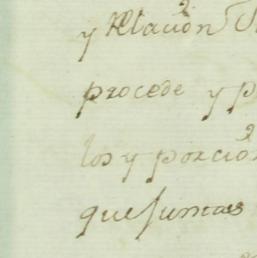 y Relación
procede y p
los y porció
que juntas